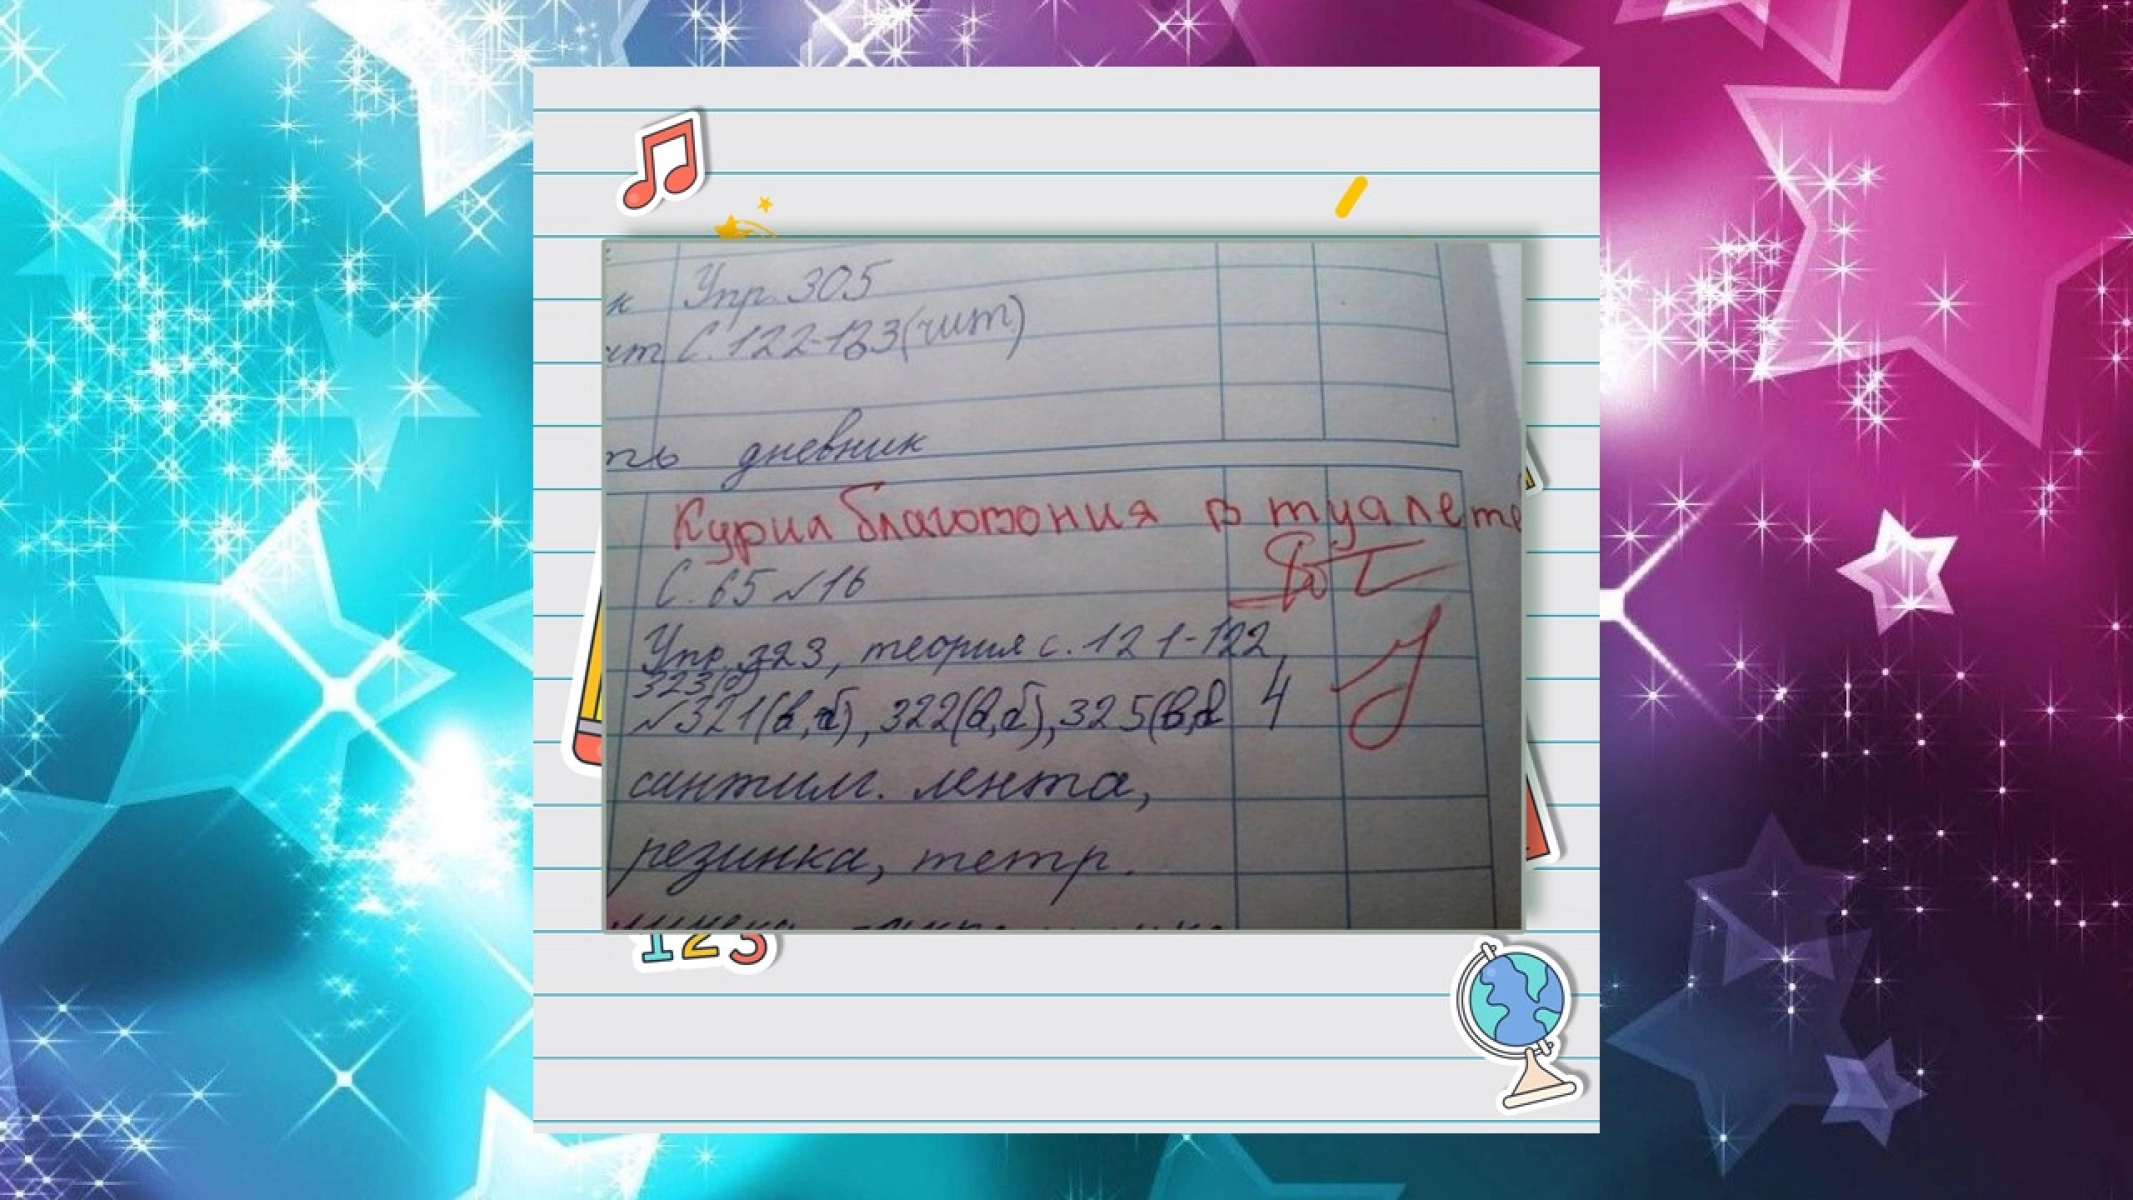 к Упр. 305
ит С. 122-123(чит.)
ть дневник
Курил благовония в туалете
С. 65 №16
Упр. 323, теория с. 121-122,
323(б)
№321(в,г), 322(в,г), 325(в,г 4
сантим. лента,
резинка, тетр.
123